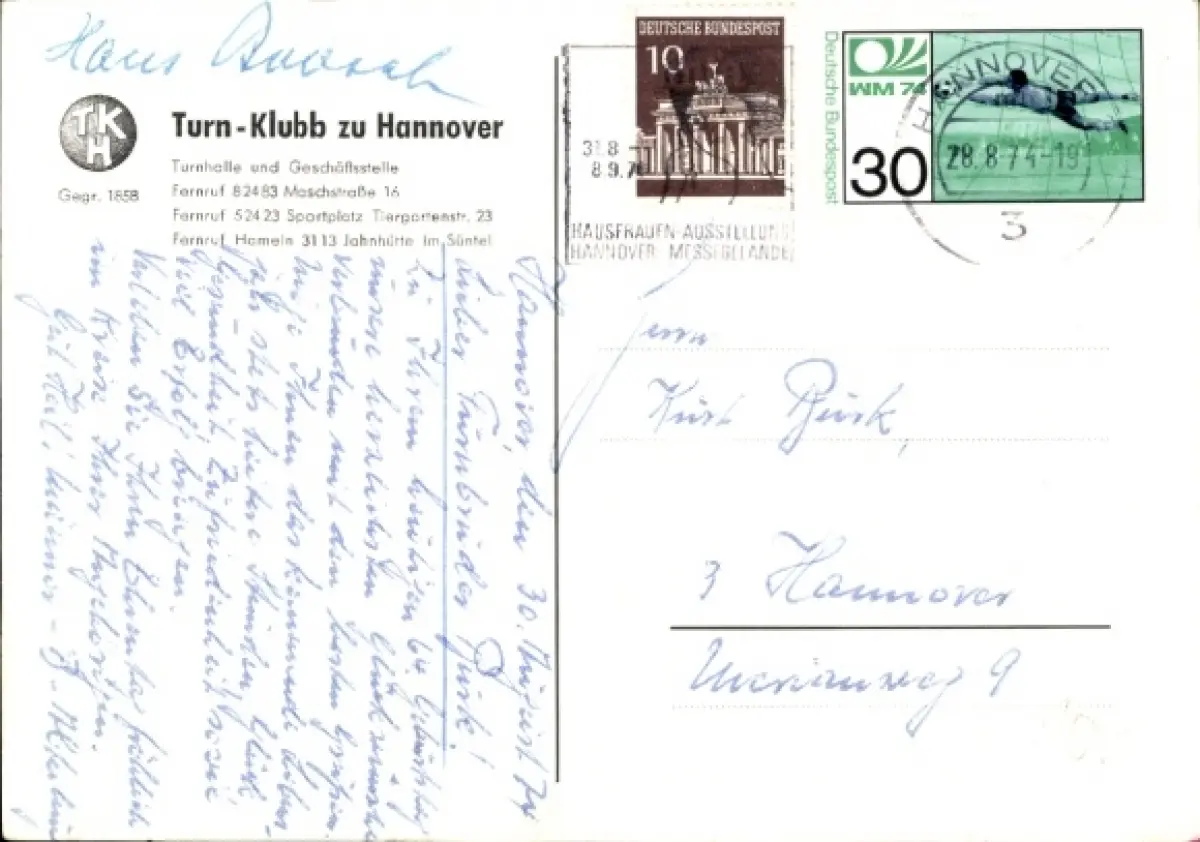 Hans
TKH
Gegr. 1858
Turn-Klubb zu Hannover
Turnhalle und Geschäftsstelle
Fernruf 82483 Maschstraße 16
Fernruf 52423 Sportplatz Tiergartenstr. 23
Fernruf Hameln 3113 Jahnhütte im Süntel
DEUTSCHE BUNDESPOST
10
31.8
8.9.7
HAUSFRAUEN-AUSSTELLUNG
HANNOVER MESSEGELÄNDE
Deutsche Bundespost
WM 74
30
HANNOVER
28.8.74-19
3
Hannover, den 30. August 74
Lieber Turnbruder Gürk!
Zu Ihrem heutigen 64. Geburtstag
unsere herzlichsten Glückwünsche
verbunden mit den besten Grüßen.
Möge Ihnen das kommende Lebens-
jahr stets heitere Stunden, Glück
Gesundheit Zufriedenheit sowie
viel Erfolg bringen.
Verleben Sie Ihren Ehrentag fröhlich
im Kreise Ihrer Angehörigen.
Gut Heil!
Herrn
Kurt
3 Hannover
9